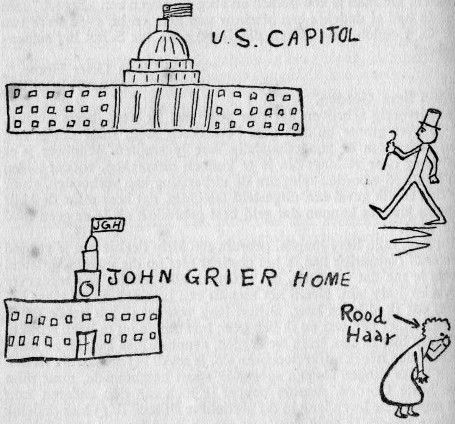 U.S. CAPITOL
JGH
JOHN GRIER HOME
Rood
Haar